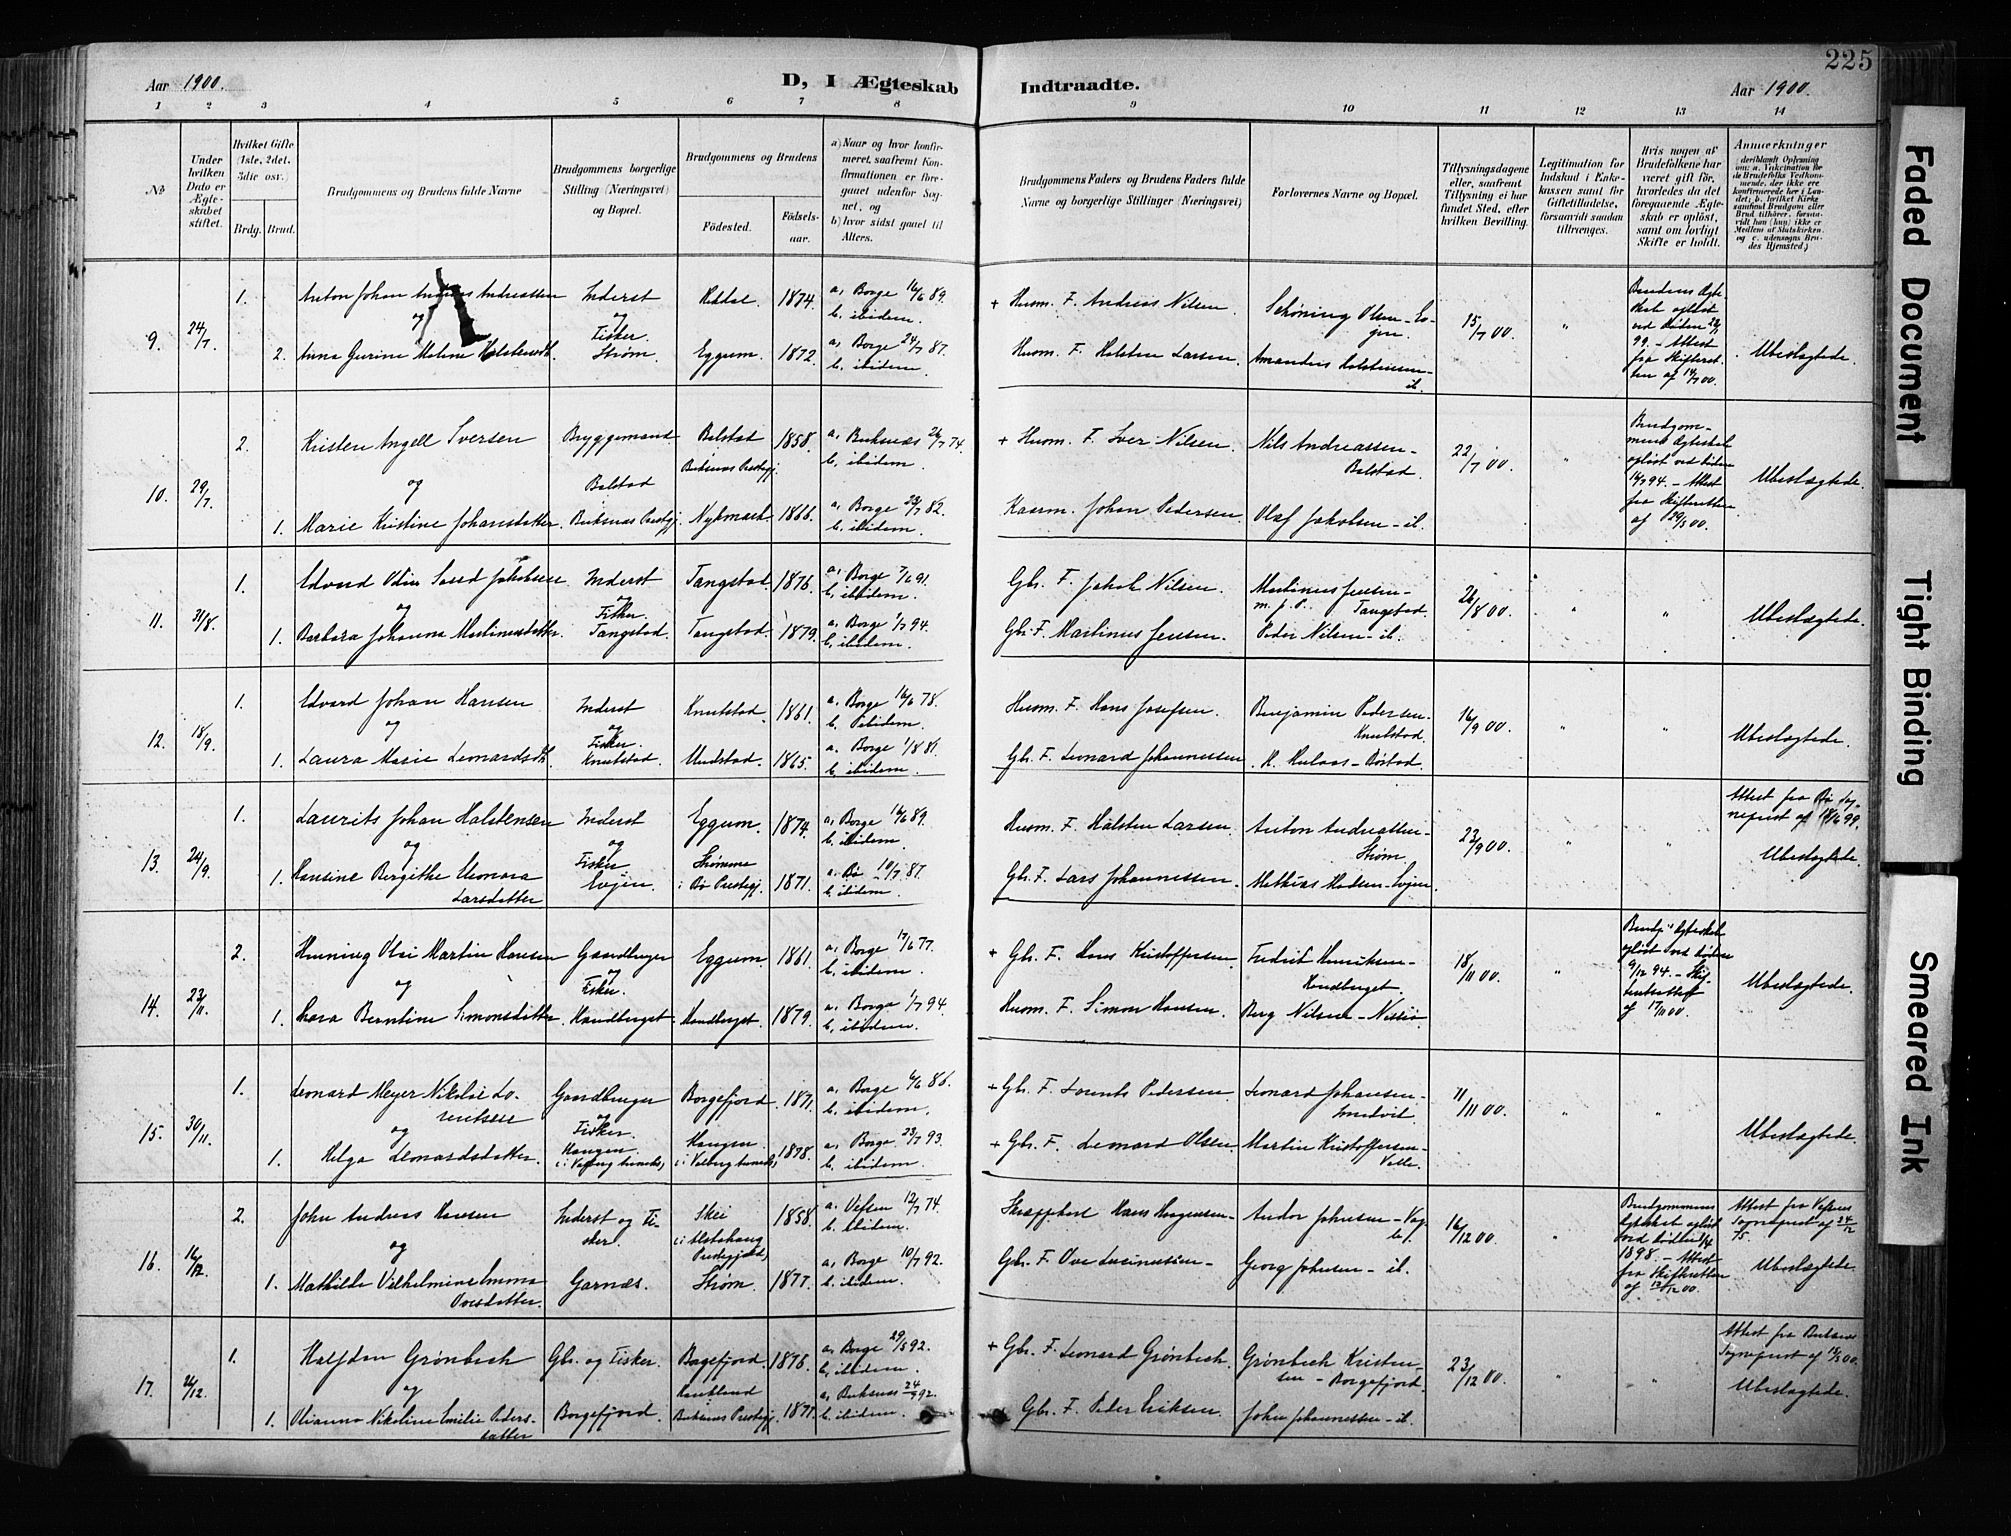 225
Aar 1900.
D, I Ægteskab
Indtraadte.
Aar 1900.
1 2 3 4 5 6 7 8 9 10 11 12 13 14
No
Under hvilken Dato er Ægteskabet stiftet.
Hvilket Gifte (1ste, 2det, 3die osv.)
Brdg. Brud.
Brudgommens og Brudens fulde Navne
Brudgommens borgerlige Stilling (Næringsvei) og Bopæl.
Brudgommens og Brudens
Fødested.
Fødselsaar.
a) Naar og hvor konfirmeret, saafremt Konfirmationen er foregaaet udenfor Sognet, og
b) hvor sidst gaaet til Alters.
Brudgommens Faders og Brudens Faders fulde Navne og borgerlige Stillinger (Næringsvei)
Forlovernes Navne og Bopæl.
Tillysningsdagene eller, saafremt Tillysning ei har fundet Sted, efter hvilken Bevilling.
Legitimation for Indskud i Enkekassen samt for Giftetilladelse, forsaavidt saadan tiltrænges.
Hvis nogen af Brudefolkene har været gift før, hvorledes da det foregaaende Ægteskab er opløst, samt om lovligt Skifte er holdt.
Anmærkninger
9. 24/7 1. Anton Johan Andreas Andreassen Inderst Reddal. 1874. a, Borge 16/6 89. b, ibidem.
og og Fisker.
2. Anna Gurine Malene Holstensdt. Strøm. Eggum. 1872. a, Borge 24/7 87. b, ibidem.
+ Husm. F. Andreas Nilsen. Schøning Olsen - Evjen. 15/7 00. "
Husm. F. Halsten Larsen. Amandus Halstensen - ib.
Brudens Ægteskab opløst ved Døden 99. - Attest fra Skifteretten af 14/7 00. Ubeslægtede.
10. 29/7 2. Kristen Angell Iversen Bryggemand Balstad Buksnæs Prestegj. 1858. a, Buksnæs 26/7 74. b, ibidem.
og Balstad
1. Marie Kristine Johansdatter. Buksnæs Prestegj. Nykmark. 1866. a, Borge 23/7 82. b, ibidem.
+ Husm. F. Iver Nilsen. Nils Andreassen - Balstad. 22/7 00. "
Kaarm. Johan Pedersen. Olaf Jakobsen - ib.
Brudgommens Ægteskab opløst ved Døden 16/7 94. - Attest fra Skifteretten af 29/5 00. Ubeslægtede.
11. 31/8. 1. Edvard Odin Sand Jakobsen Inderst Tangstad. 1876. a, Borge 7/6 91. b, ibidem.
og og Fisker.
1. Barbara Johanna Martinusdatter. Tangstad. Tangstad. 1879. a. Borge 1/7 94. b, ibidem.
Gbr. F. Jakob Nilsen. Martinus Jensen - m. f. P. Tangstad. 26/8 00. " "
Gbr. F. Martinus Jensen. Peder Nilsen - ib. Ubeslægtede.
12. 18/9. 1. Edvard Johan Hansen Inderst Knutstad. 1861. a, Borge 16/6 78. b, ibidem.
og og Fisker.
1. Laura Marie Leonardsdt. Knutstad. Undstad. 1865. a. Borge 1/8 81. b, ibidem.
Husm. F. Hans Josefsen. Benjamin Pedersen - Knutstad. 16/9 00. " "
Gbr. F. Leonard Johannessen. H. Hulaas - Bøstad. Ubeslægtede.
13. 24/9. 1. Laurits Johan Halstensen Inderst Eggum. 1874. a, Borge 16/6 89. b, ibidem.
og og Fisker
1. Hansine Bergitte Eleonora Larsdatter Evjen. Strømme i Bø Prestegj. 1871. a. Bø 10/7 87. b, ibidem.
Husm. F. Halsten Larsen. Anton Andreassen - Strøm. 23/9 00. " "
Gbr. F. Lars Johannessen. Mathias Madsen - Evjen.
Attest fra Bø Sogneprest af 18/6 99. Ubeslægtede.
14. 23/11. 2. Henning Olai Martin Hansen Gaardbruger Eggum. 1861. a, Borge 17/6 77. b, ibidem.
og og Fisker.
1. Lara Berntine Simonsdatter. Handberget. Handberget. 1879. a, Borge 1/7 94. b, ibidem.
+ Gbr. F. Hans Kristoffersen. Fredrik Henriksen - Handberget. 18/11 00. "
Husm. F. Simon Hansen. Berg Nilsen -
Brudg.s Ægteskab opløst ved Døden 9/12 94. - Skifterettsatt. af 17/11 00. Ubeslægtede.
15. 30/11. 1. Leonard Meyer Nikolai Lorentsen Gaardbruger Borgefjord. 1871. a, Borge 6/6 86. b, ibidem.
og og Fisker.
1. Helga Leonardsdatter. Haugen (i Valberg Annex) Haugen (i Valberg Annex) 1878. a, Borge 23/7 93. b, ibidem.
+ Gbr. F. Lorents Pedersen. Leonard Johansen - Smedvik. 11/11 00. " "
+ Gbr. F. Leonard Olsen. Martin Kristoffersen - Valle. Ubeslægtede.
16. 16/12. 2. John Andreas Hansen Inderst og Fisker. Skei (i Alstahaug Prestegjeld) 1858. a. Vefsen 12/7 74. b. ibidem.
og
1. Mathilde Vilhelmine Emma Ovesdatter. Garnæs. Strøm. 1877. a, Borge 10/7 92. b. ibidem.
Hans Jørgensen - Andor Johnsen - 16/12 00. "
Gbr. F. Ove - Georg Johnsen - ib.
Brudgommens Ægteskab opløst ved Døden 1898 - Attest fra Skifteretten af 13/12 00. Attest fra Vefsens Sogneprest af 24/12 75. Ubeslægtede.
17. 26/12. 1. Halfdan Grønbech Gbr. og Fisker. Borgefjord. 1876. a, Borge 29/5 92. b, ibidem.
og
1. Olianna Nikoline Emilie Pedersdatter Borgefjord. Haukland Buksnæs Prestegj. 1877. a, Buksnæs 24/7 92. b. ibidem.
+ Gbr. F. Leonard Grønbech. Grønbech Kristensen - Borgefjord. 23/12 00. " "
Gbr. F. Peder Eriksen. John Johannessen - ib.
Attest fra Buksnæs Sogneprest af 00. Ubeslægtede.
Faded Document
Tight Binding
Smeared Ink